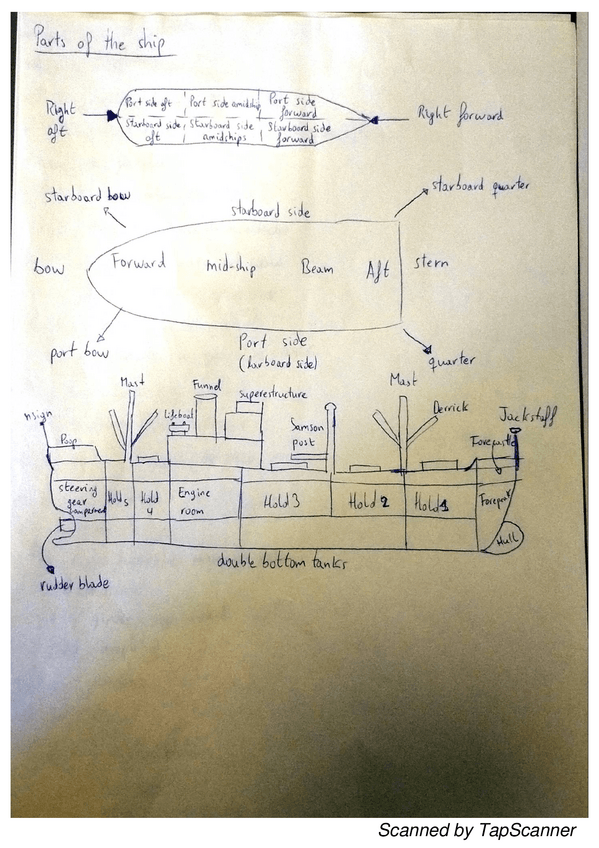 Parts of the ship
Right
aft
Port side aft
Port side amidship
Port side
forward
Starboard side
aft
Starboard side
amidships
Starboard side
forward
Right forward
starboard bow
starboard side
starboard quarter
bow
Forward
mid-ship
Beam
Aft
stern
port bow
Port side
(larboard side)
quarter
nsign
Mast
Funnel
superestructure
Mast
Derrick
Jackstaff
Lifeboat
Samson
post
Poop
Forecastle
steering
gear
Hold 5
Hold
4
Engine
room
Hold 3
Hold 2
Hold 1
Forepeak
Hull
double bottom tanks
rudder blade
Scanned by TapScanner